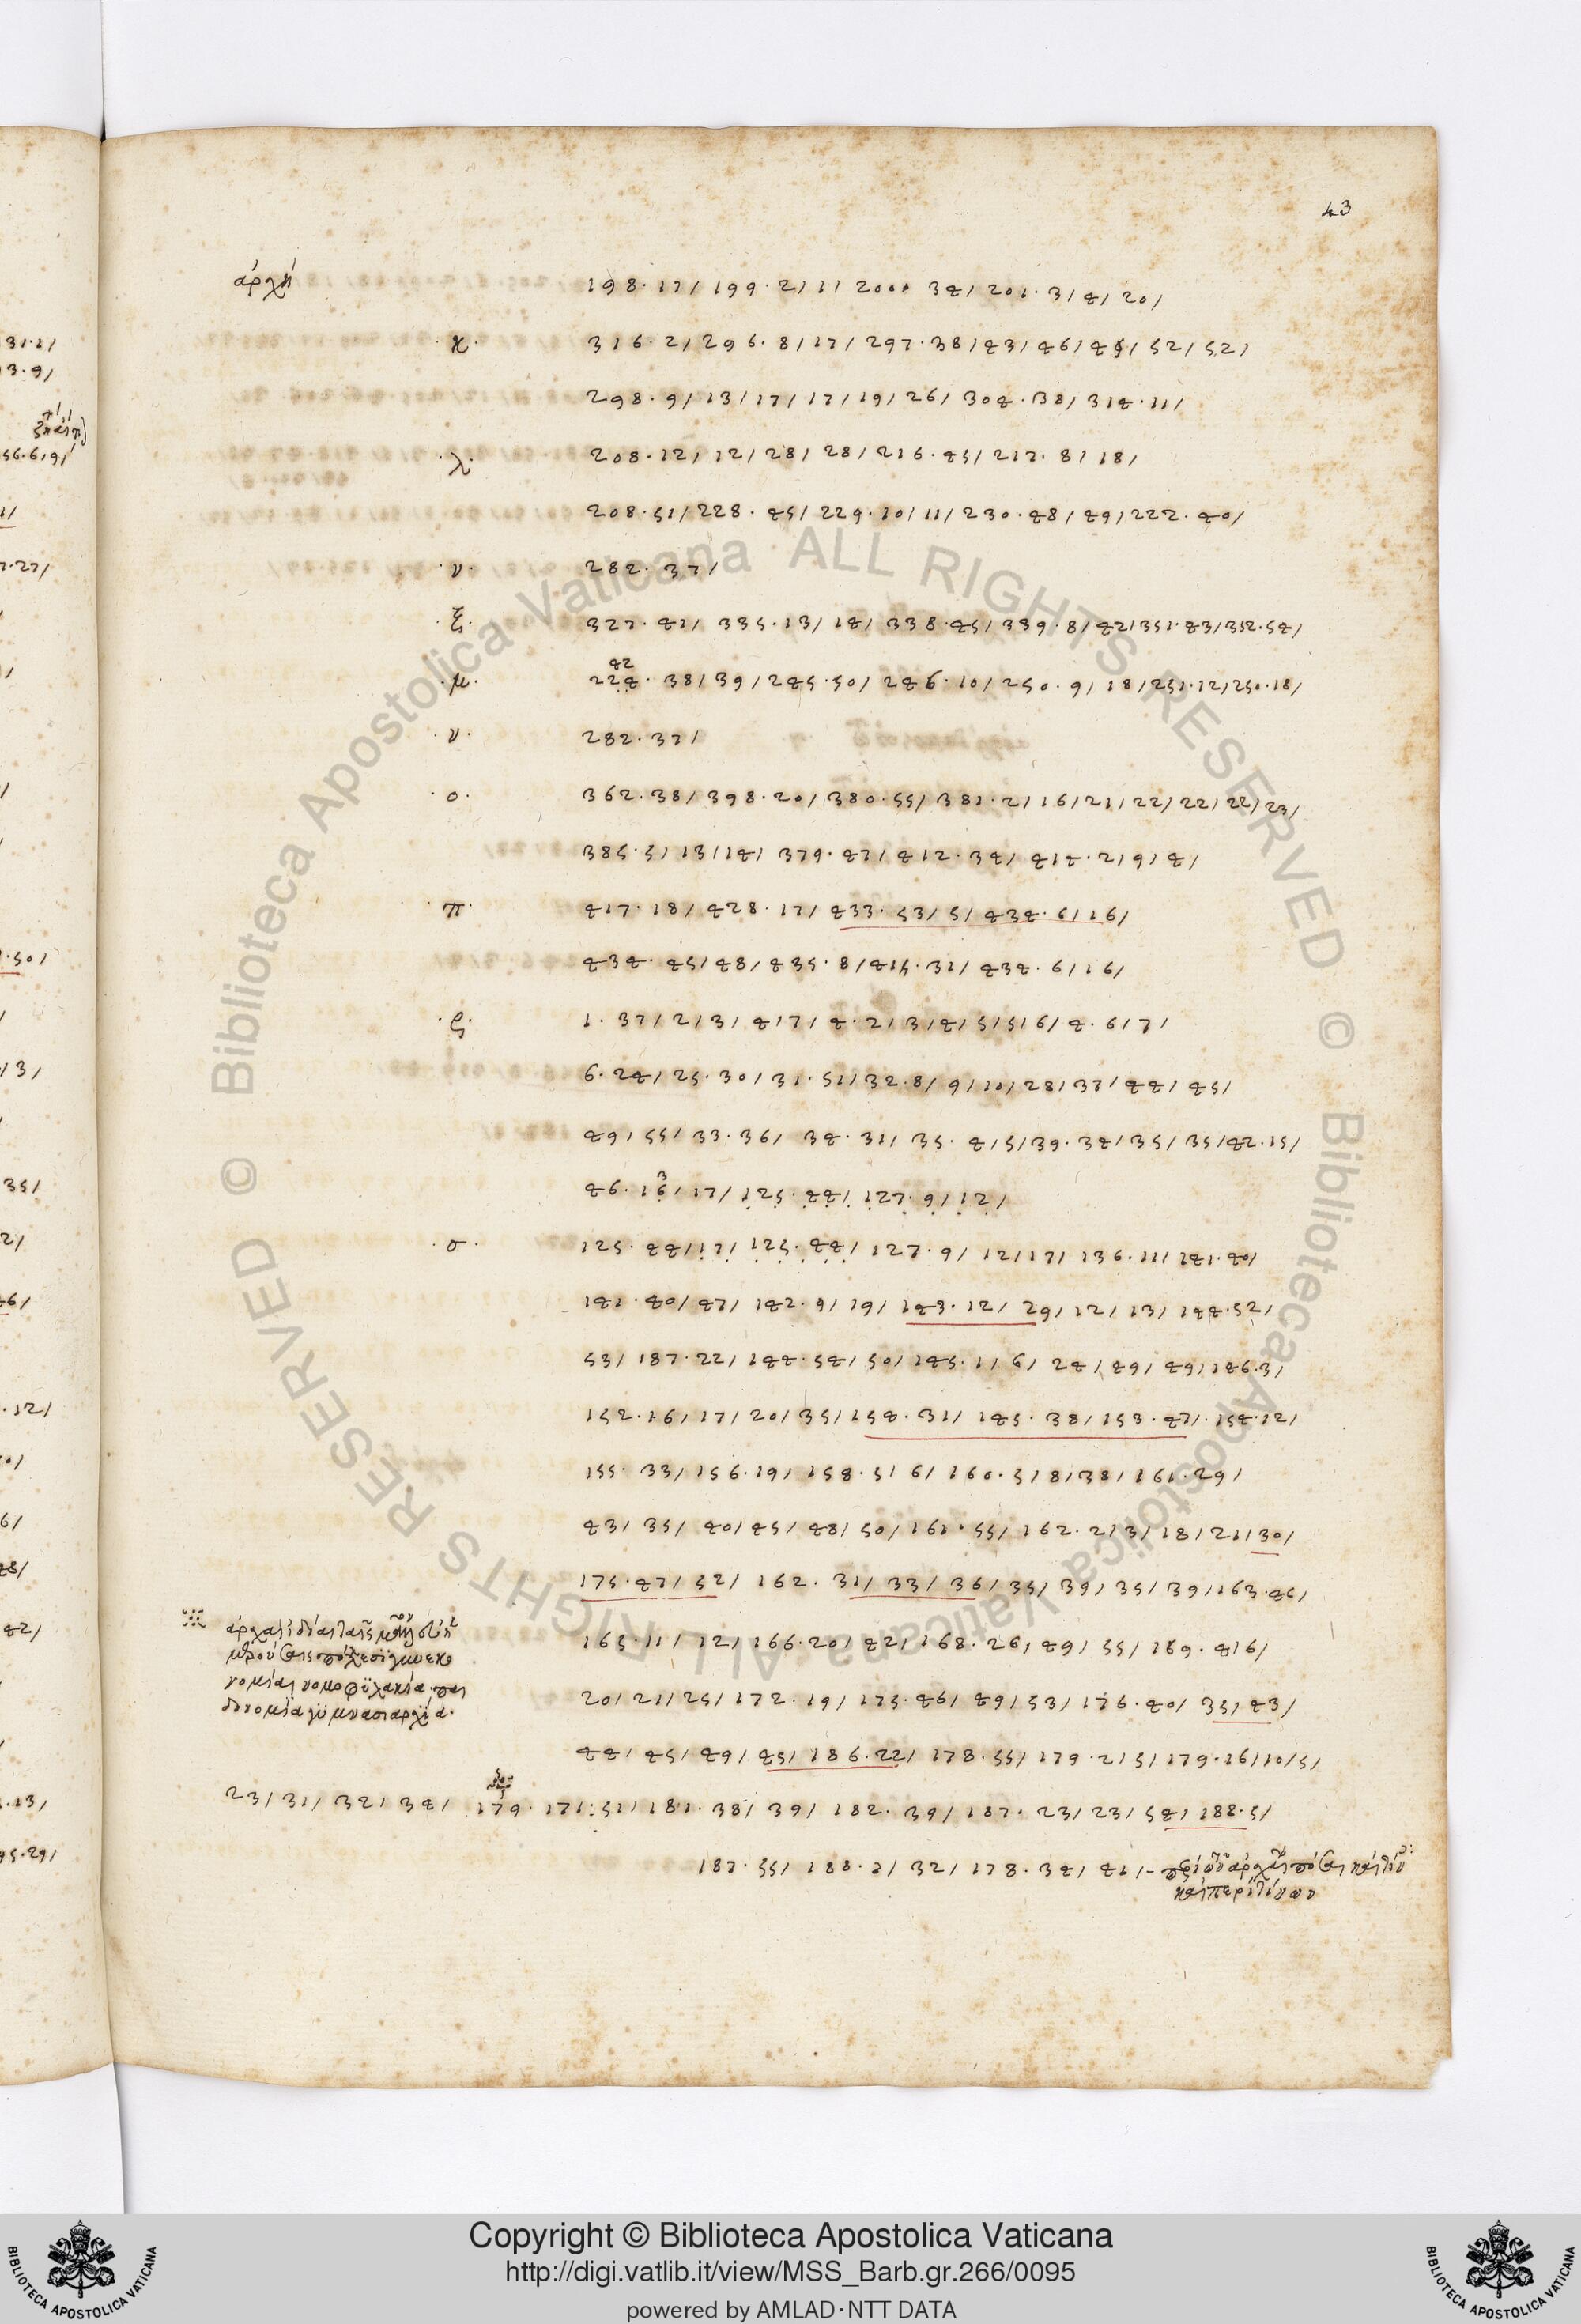 43
ἀρχή 198. 17/ 199. 2/ 1/ 200. 34/ 201. 3/ 4/ 20/
·κ· 316. 2/ 296. 8/ 17/ 297. 38/ 43/ 46/ 52/ 52/
298. 9/ 13/ 17/ 17/ 19/ 26/ 304. 38/ 314. 11/
·λ· 208. 12/ 12/ 28/ 28/ 216. 45/ 217. 8/ 18/
208. 51/ 228. 45/ 229. 10/ 11/ 230. 48/ 49/ 222. 40/
·ν· 282. 37/
·ξ· 327. 41/ 335. 13/ 14/ 338. 45/ 339. 8/ 42/ 351. 43/ 352. 54/
42
·μ· 224. 38/ 39/ 245. 50/ 246. 10/ 250. 9/ 18/ 251. 12/ 250. 18/
·ν· 282. 37/
·ο· 362. 38/ 398. 20/ 380. 55/ 381. 2/ 16/ 21/ 22/ 22/ 22/ 23/
385. 5/ 13/ 14/ 379. 47/ 412. 34/ 414. 2/ 9/ 4/
·π· 417. 18/ 428. 17/ 433. 53/ 5/ 434. 6/ 16/
434. 45/ 48/ 435. 8/ 415. 31/ 434. 6/ 16/
·ρ· 1. 37/ 2/ 3/ 4/ 7/ 4. 2/ 3/ 4/ 5/ 5/ 6/ 4. 6/ 7/
6. 24/ 25. 30/ 31. 51/ 32. 8/ 9/ 10/ 28/ 37/ 44/ 45/
49/ 55/ 33. 36/ 34. 31/ 35. 4/ 5/ 39. 34/ 35/ 35/ 42. 15/
3
46. 16/ 17/ 125. 44/ 127. 9/ 12/
·σ· 125. 44/ 17/ 125. 44/ 127. 9/ 12/ 17/ 136. 11/ 141. 40/
141. 40/ 47/ 142. 9/ 19/ 143. 12/ 29/ 12/ 13/ 144. 52/
53/ 187. 22/ 144. 54/ 50/ 145. 1/ 6/ 24/ 49/ 49/ 146. 3/
152. 16/ 17/ 20/ 35/ 154. 31/ 145. 38/ 153. 47/. 154. 12/
155. 33/ 156. 19/ 158. 5/ 6/ 160. 5/ 8/ 38/ 161. 29/
43/ 35/ 40/ 45/ 48/ 50/ 161. 55/ 162. 2/ 3/ 18/ 21/ 30/
175. 47/ 52/ 162. 31/ 33/ 36/ 35/ 39/ 35/ 39/ 163. 45/
165. 11/ 12/ 166. 20/ 42/ 168. 26/ 49/ 55/ 169. 4/ 6/
νομίαι νομοφϋλακία
20/ 21/ 25/ 172. 19/ 175. 46/ 49/ 53/ 176. 40/ 35/ 43/
δονομία γϋμνασιαρχία·
44/ 45/ 49/ 45/ 186. 22/ 178. 55/ 179. 2/ 5/ 179. 16/ 10/ 5/
23/ 31/ 32/ 34/ 179. 171: 51/ 181. 38/ 39/ 182. 39/ 187. 23/ 23/ 54/ 188. 5/
187. 55/ 188. 2/ 32/ 178. 34/ 41/-
καὶ περὶ τίνων
© Biblioteca Apostolica Vaticana ALL RIGHTS RESERVED © Biblioteca Apostolica Vaticana ALL RIGHTS RESERVED
Copyright © Biblioteca Apostolica Vaticana
http://digi.vatlib.it/view/MSS_Barb.gr.266/0095
powered by AMLAD·NTT DATA
BIBLIOTECA APOSTOLICA VATICANA
BIBLIOTECA APOSTOLICA VATICANA